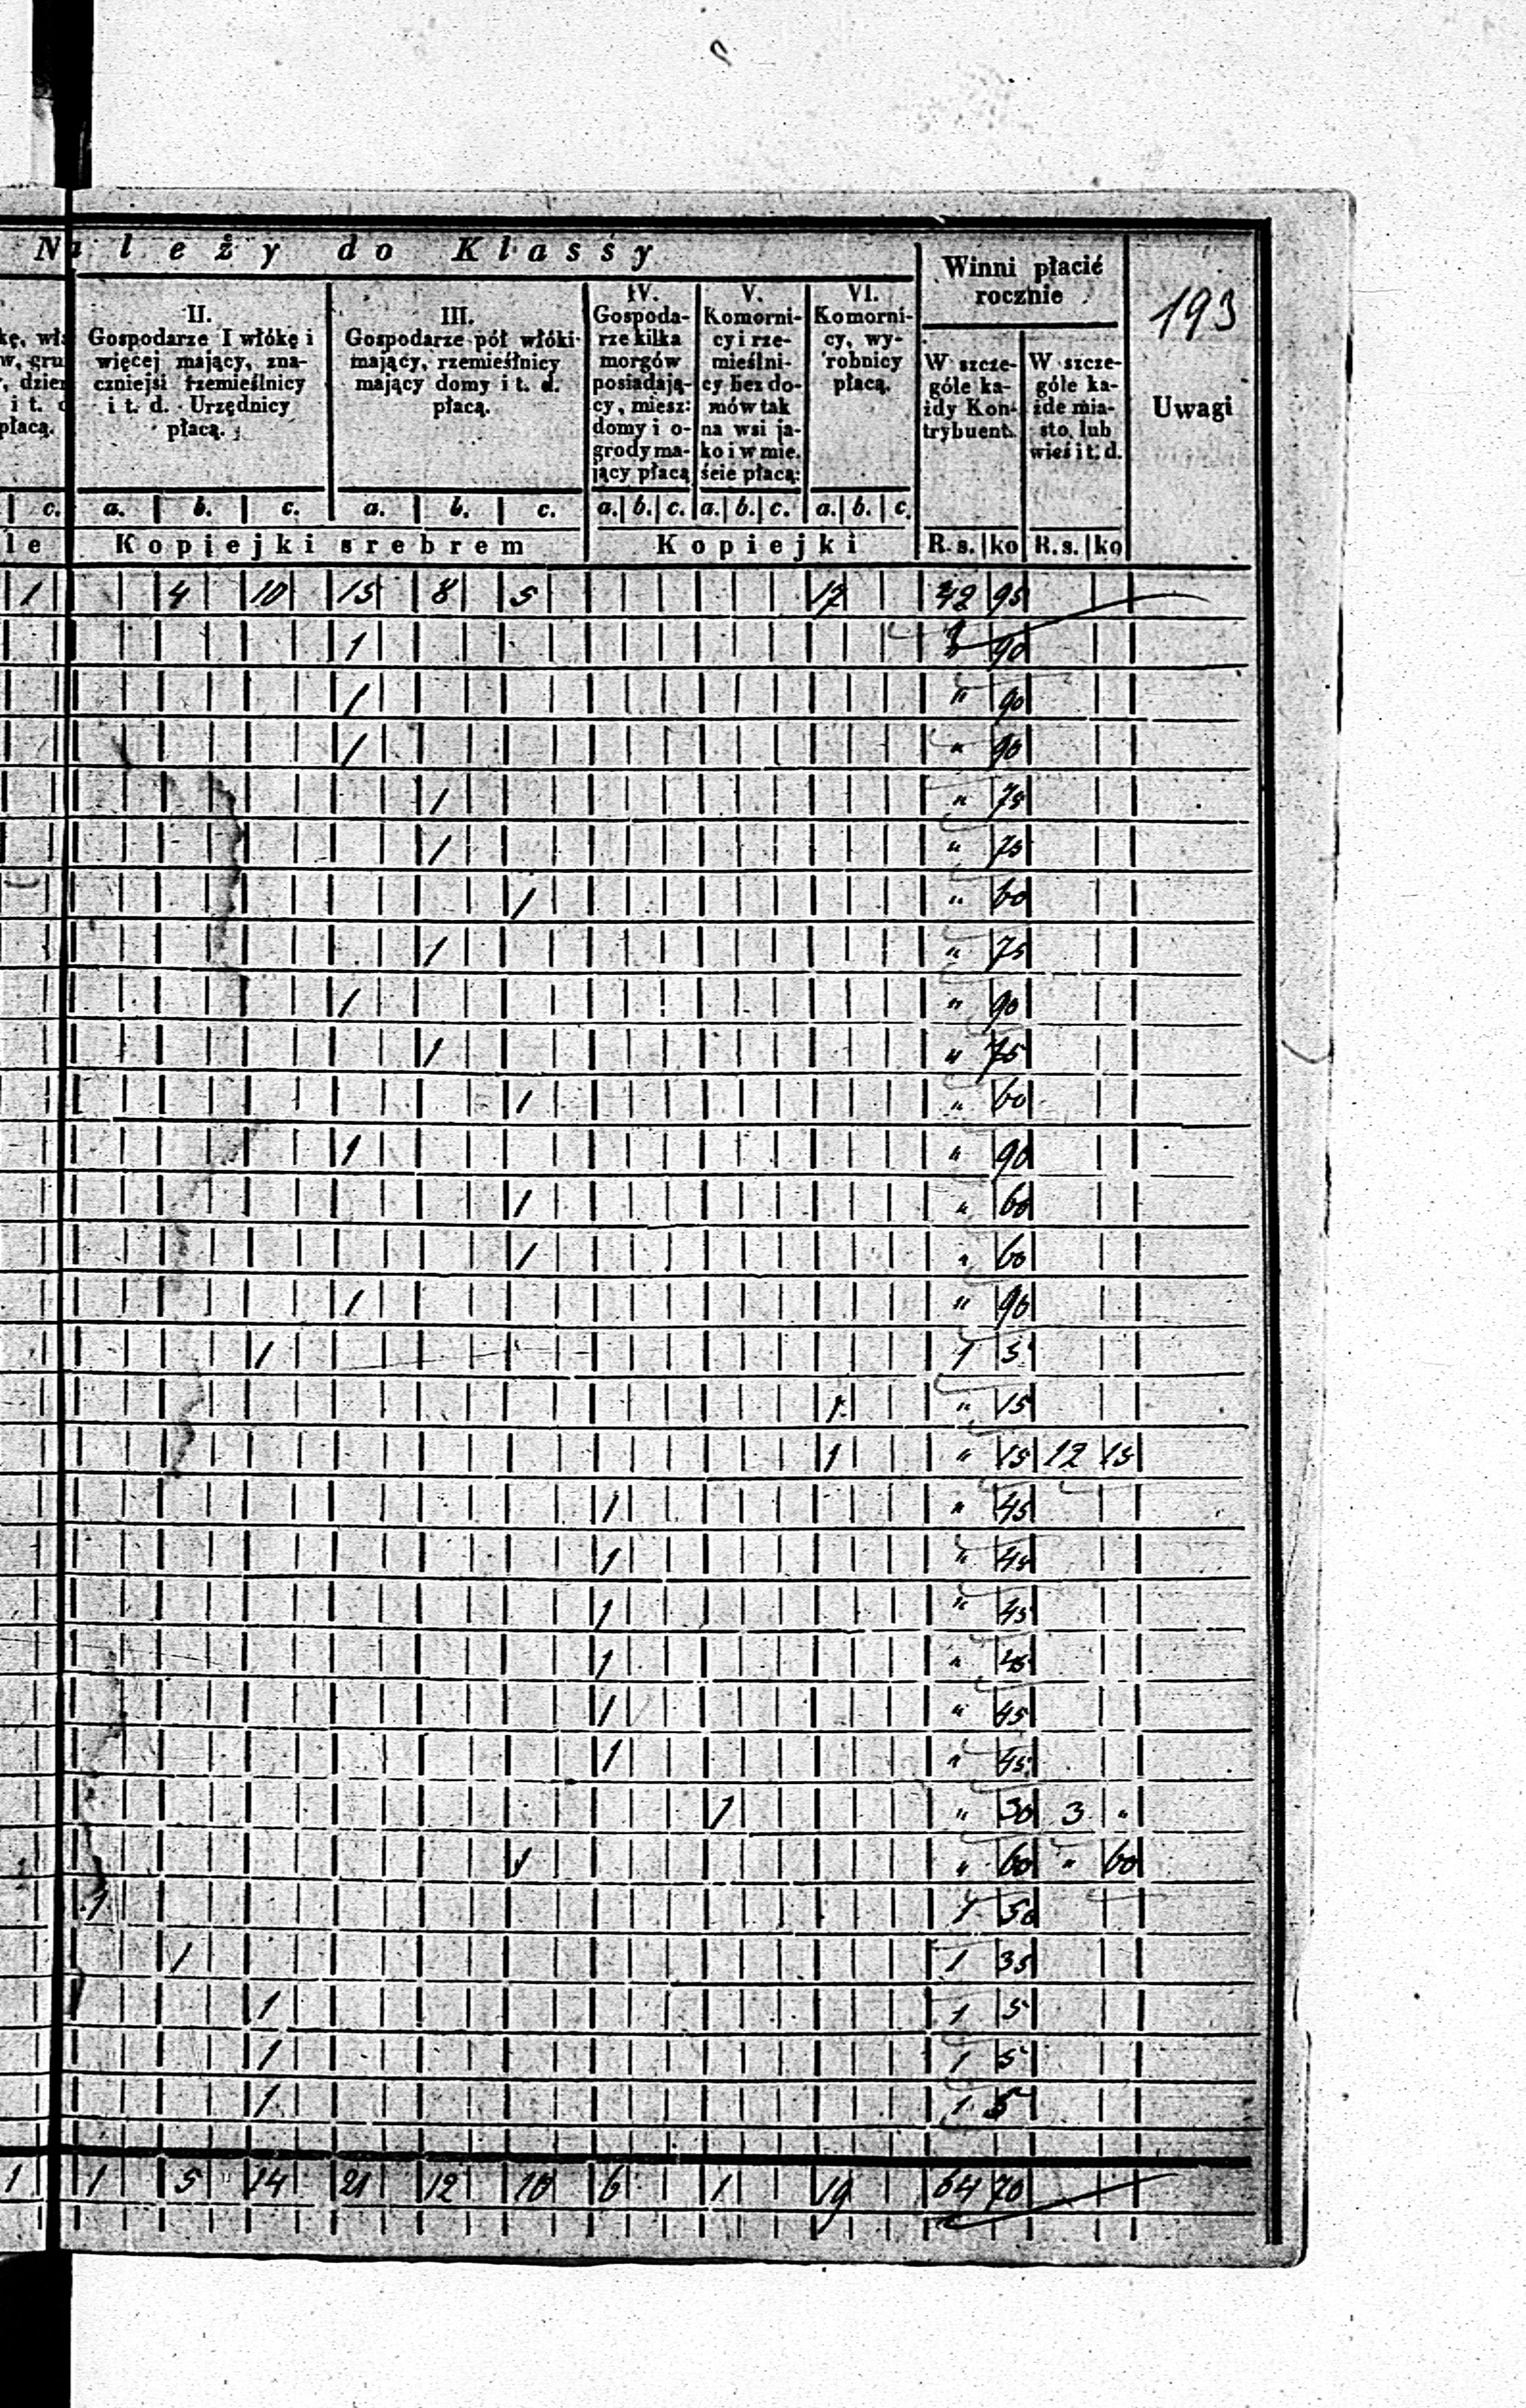 Należy do Klassy
Winni płacić rocznie
193
kę, wł
w, gru
, dzier
i t. d
płacą.
II.
Gospodarze I włókę i
więcej mający, zna-
czniejśi rzemieślnicy
i t. d. Urzędnicy
płacą.
III.
Gospodarze pół włóki
mający, rzemieślnicy
mający domy i t. d.
płacą.
IV.
Gospoda-
rze kilka
morgów
posiadają-
cy, miesz:
domy i o-
grody ma-
jący płacą
V.
Komorni-
cy i rze-
mieślni-
cy bez do-
mów tak
na wsi ja-
ko i w mie.
ście płacą:
VI.
Komorni-
cy, wy-
robnicy
płacą.
W szcze-
góle ka-
żdy Kon-
trybuent.
W szcze-
góle ka-
żde mia-
sto, lub
wieś i t. d.
Uwagi
c. a. b. c. a. b. c. a. b. c. a. b. c. a. b. c.
le Kopiejki srebrem Kopiejki R. s. ko R. s. ko
1 4 10 15 8 5 17 42 95
1 " 90
1 " 90
1 " 90
1 " 75
1 " 75
1 " 60
1 " 75
1 " 90
1 " 75
1 " 60
1 " 90
1 " 60
1 " 60
1 " 90
1 1 5
1 " 15
1 " 15 12 15
1 " 45
1 " 45
1 " 45
1 " 45
1 " 45
1 " 45
1 " 30 3 "
1 " 60 " 60
1 1 50
1 1 35
1 1 5
1 1 5
1 1 5
1 1 5 14 21 12 10 6 1 19 64 70